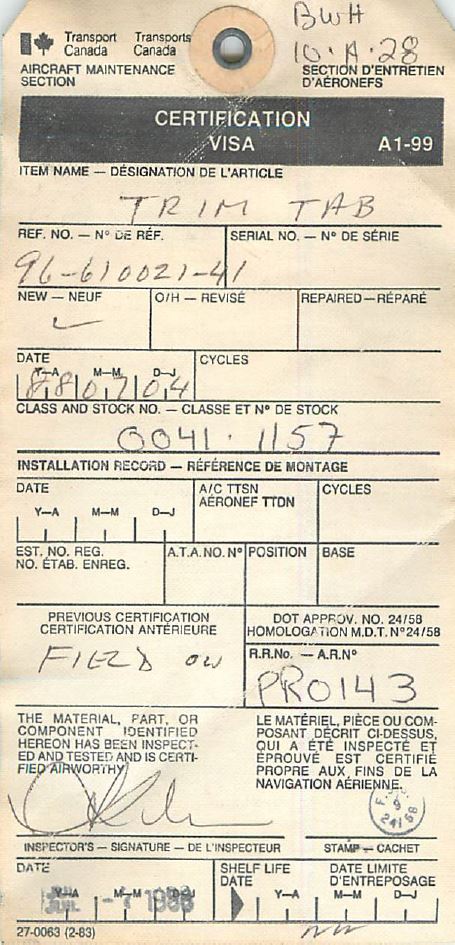 BWH
10·A·28
Transport Canada Transports Canada
AIRCRAFT MAINTENANCE SECTION SECTION D'ENTRETIEN D'AÉRONEFS
CERTIFICATION
VISA A1-99
ITEM NAME — DÉSIGNATION DE L'ARTICLE
TRIM TAB
REF. NO. — Nº DE RÉF. SERIAL NO. — Nº DE SÉRIE
96-610021-41
NEW — NEUF O/H — REVISÉ REPAIRED — RÉPARÉ
DATE CYCLES
Y—A M—M D—J
880704
CLASS AND STOCK NO. — CLASSE ET Nº DE STOCK
0041·1157
INSTALLATION RECORD — RÉFÉRENCE DE MONTAGE
DATE A/C TTSN CYCLES
AÉRONEF TTDN
Y—A M—M D—J
EST. NO. REG. A.T.A. NO. Nº POSITION BASE
NO. ÉTAB. ENREG.
PREVIOUS CERTIFICATION DOT APPROV. NO. 24/58
CERTIFICATION ANTÉRIEURE HOMOLOGATION M.D.T. Nº 24/58
R.R.No. — A.R.Nº
FIELD
PRO143
THE MATERIAL, PART, OR
COMPONENT IDENTIFIED
HEREON HAS BEEN INSPECT-
ED AND TESTED AND IS CERTI-
FIED AIRWORTHY.
LE MATÉRIEL, PIÈCE OU COM-
POSANT DÉCRIT CI-DESSUS,
QUI A ÉTÉ INSPECTÉ ET
ÉPROUVÉ EST CERTIFIÉ
PROPRE AUX FINS DE LA
NAVIGATION AÉRIENNE.
9
24/58
INSPECTOR'S — SIGNATURE — DE L'INSPECTEUR STAMP — CACHET
DATE SHELF LIFE DATE DATE LIMITE D'ENTREPOSAGE
Y—A M—M D—J Y—A M—M D—J
JUIL -7 1988
27-0063 (2-83)